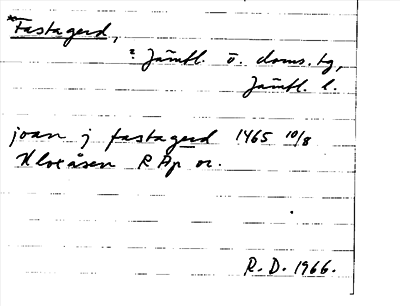 *Fastagerd,
? Jämtl. ö. doms. tg,
Jämtl. l.
joan j fastagerd 1465 10/8
Kloxåsen RAp or.
R.D. 1966.